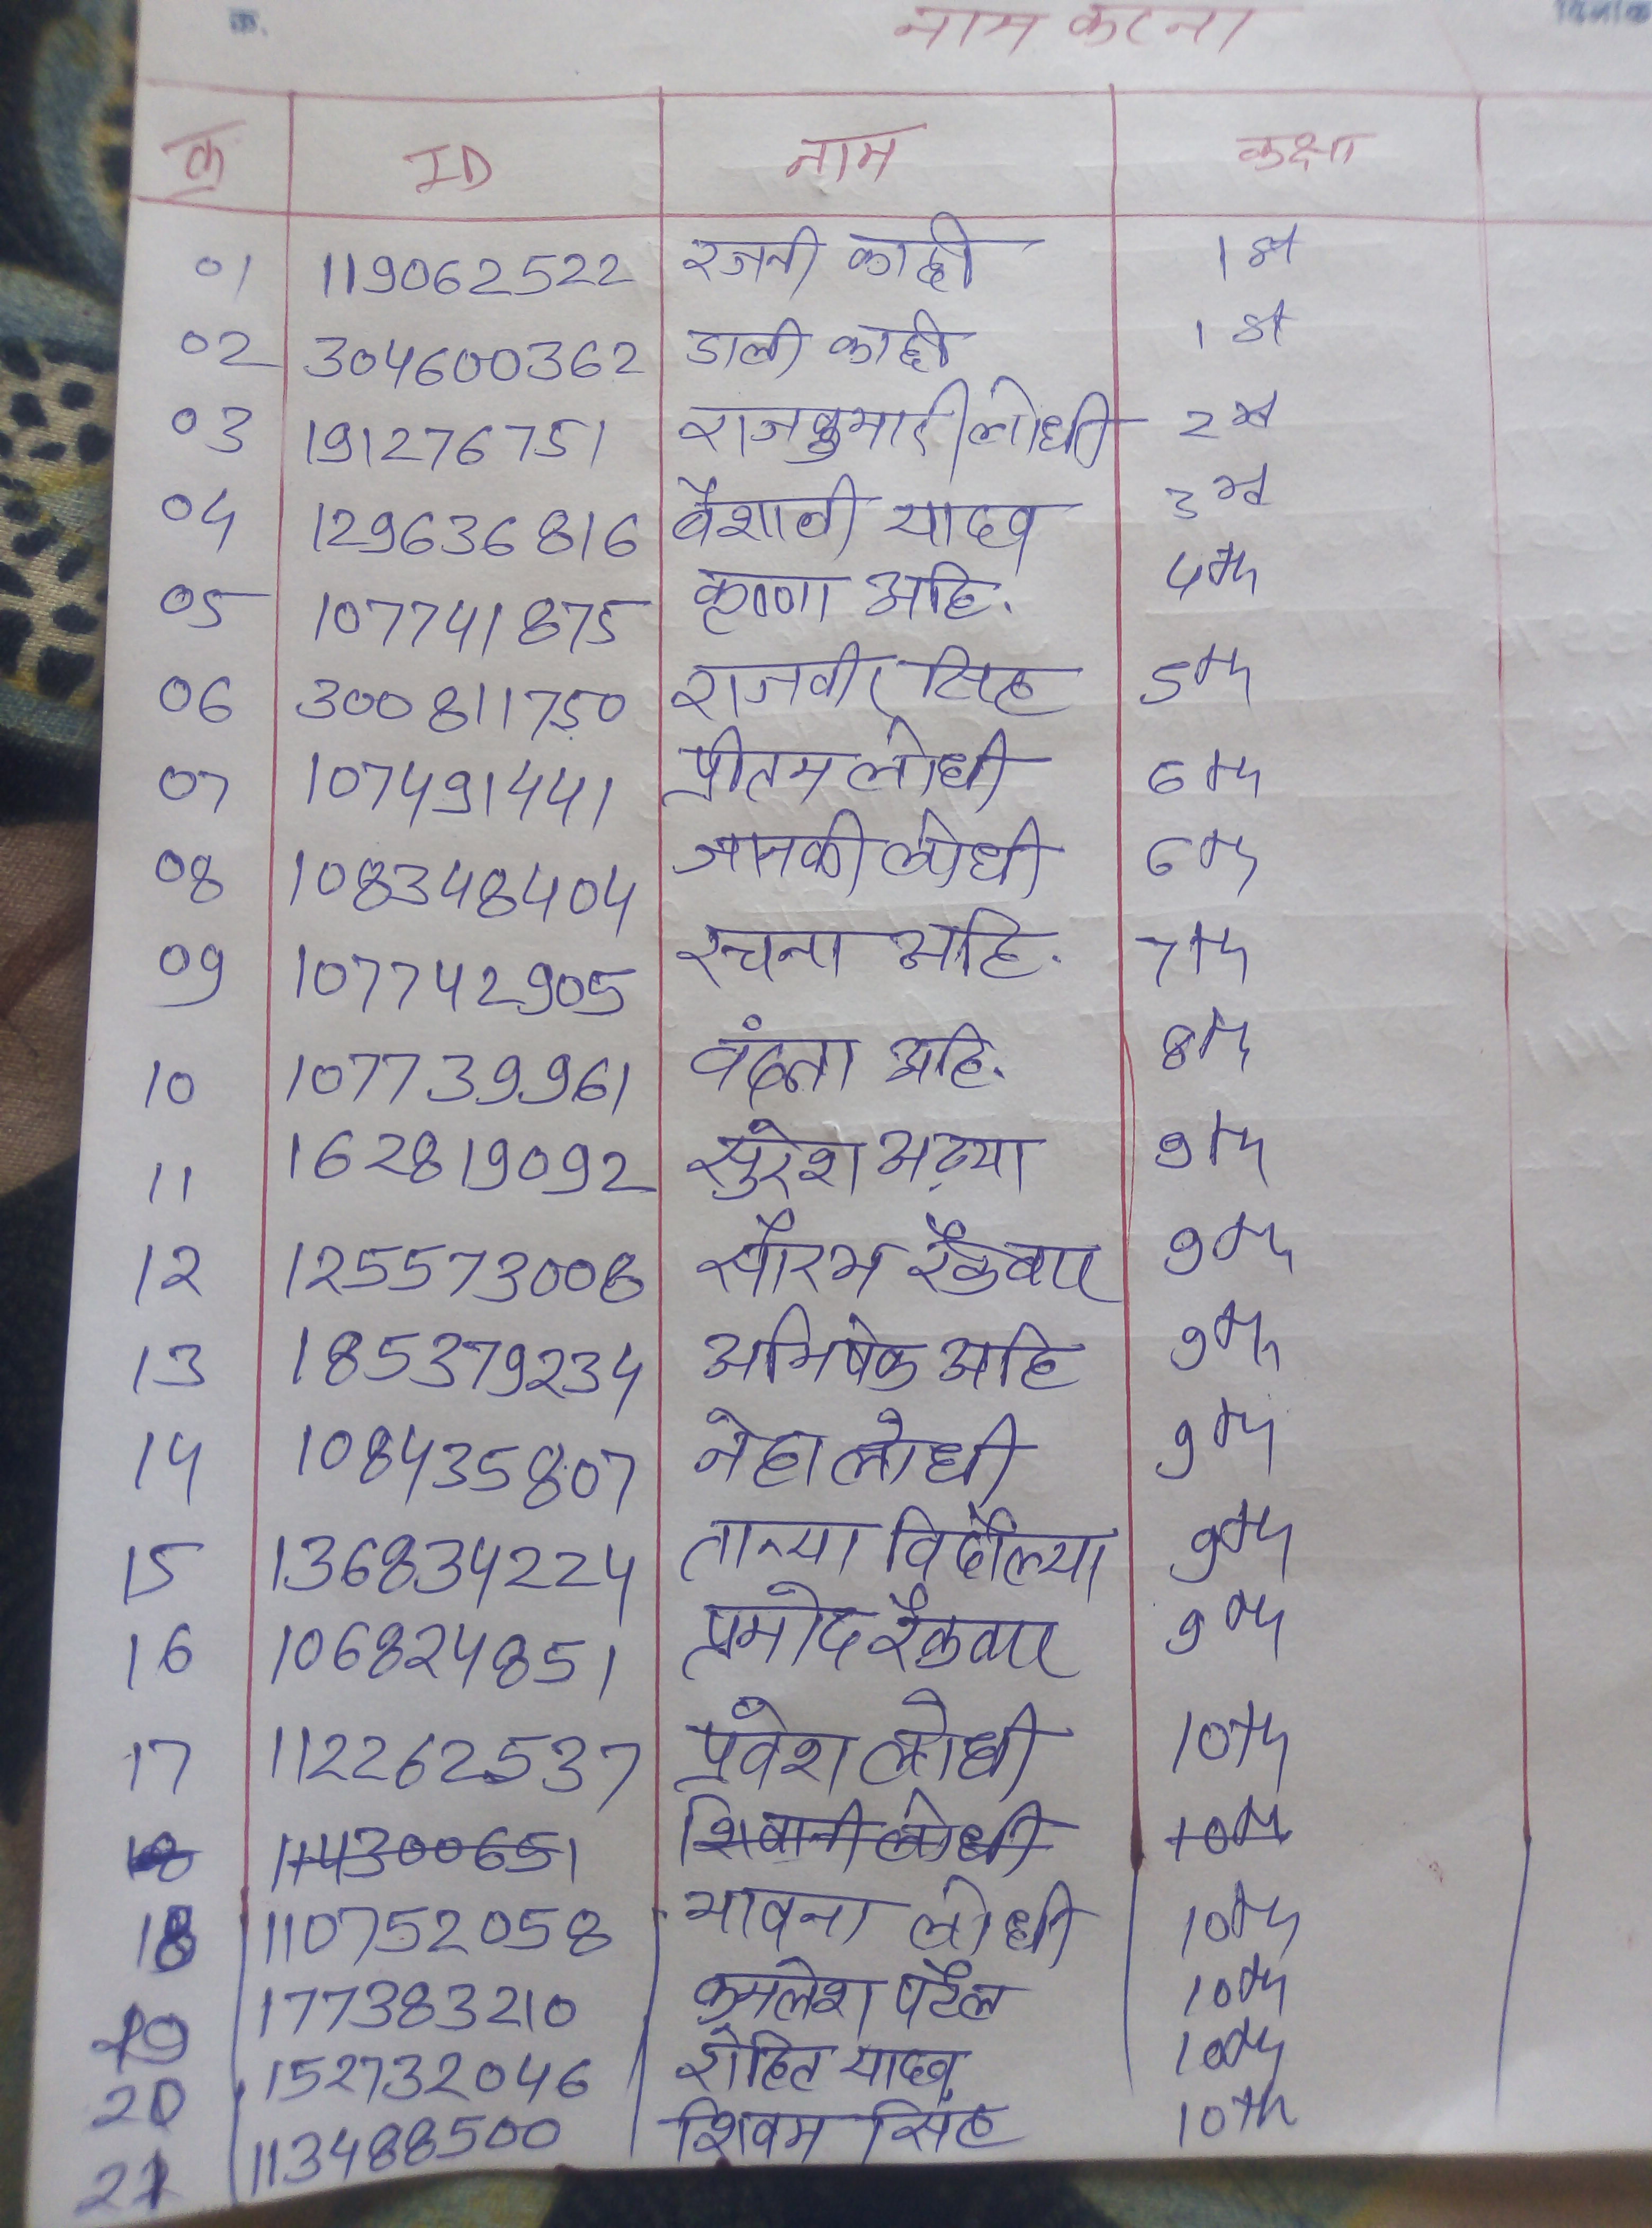 नाम कटना
क्र ID नाम कक्षा
01 119062522 रजनी काछी 1st
02 304600362 डाली काछी 1st
03 191276751 राजकुमारी लोधी 2nd
04 129636816 वैशाली यादव 3rd
05 107741875 कृष्णा अहि. 4th
06 300811750 राजवीर सिंह 5th
07 107491441 प्रीतम लोधी 6th
08 108348404 जानकी लोधी 6th
09 107742905 रचना अहि. 7th
10 107739961 वंदना अहि. 8th
11 162819092 सुरेश अढ़्या 9th
12 125573008 सौरभ रैकवार 9th
13 185379234 अभिषेक अहि 9th
14 108435807 नेहा लोधी 9th
15 136834224 तान्या विदौल्या 9th
16 106824851 प्रमोद रैकवार 9th
17 112262537 प्रवेश लोधी 10th
18 114300651 शिवानी लोधी 10th
18 110752058 भावना लोधी 10th
19 177383210 कमलेश पटेल 10th
20 152732046 रोहित यादव 10th
21 113488500 शिवम सिंह 10th